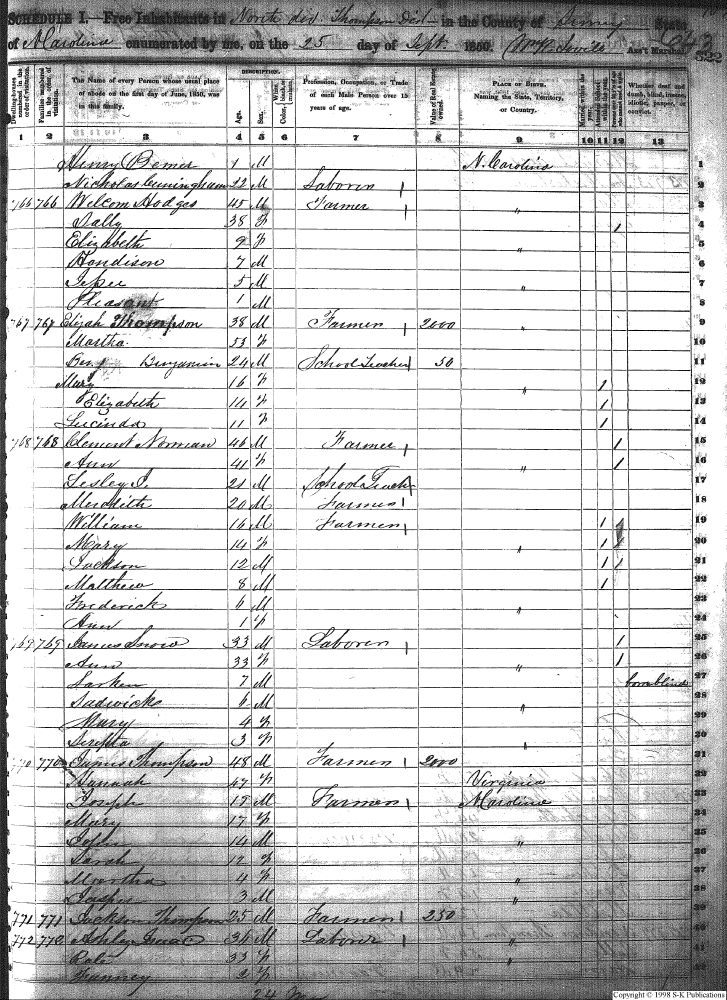 SCHEDULE I.—Free Inhabitants in North div Thompson Dist in the County of State
of N Carolina enumerated by me, on the 25 day of Sept. 1850. Ass't Marshal.
Dwelling-houses numbered in the order of visitation.
Families numbered in the order of visitation.
The Name of every Person whose usual place of abode on the first day of June, 1850, was in this family.
DESCRIPTION.
Age.
Sex.
Profession, Occupation, or Trade of each Male Person over 15 years of age.
Value of Real Estate owned.
PLACE OF BIRTH. Naming the State, Territory, or Country.
Whether deaf and dumb, blind, insane, idiotic, pauper, or convict.
1 2 3 4 5 6 7 8 9 10 11 12 13
Henry 1 M N. Carolina 1
Nicholas Cuningham 22 M Laborer 1 2
766 766 Welcom Hodges 45 M Farmer 1 " 3
Sally 38 F 1 4
Elizabeth 9 F " 5
Handison 7 M 6
5 M 7
Pleasant 1 M 8
767 767 Elijah Thompson 38 M Farmer 1 2000 " 9
Martha 53 F 10
Benj Benjamin 24 M School Teacher 50 11
Mary 16 F " 1 12
Elizabeth 14 F 1 13
Lucinda 11 F 1 14
768 768 Clement Norman 46 M Farmer 1 1 15
Ann 41 F " 1 16
Lesley J. 21 M School Teacher 17
Meredith 20 M Farmer 1 18
William 16 M Farmer 1 1 19
Mary 14 F " 1 20
Jackson 12 M 1 1 21
Matthew 8 M 1 22
Frederick 6 M " 23
Ann 1 F 24
769 769 James Snow 33 M Laborer 1 1 25
Ann 33 F " 1 26
Larken 7 M born blind 27
Sadwicke 6 M " 28
Mary 4 F 29
3 F " 30
770 770 James Thompson 48 M Farmer 1 2000 31
Hannah 47 F Virginia 32
Joseph 19 M Farmer 1 N Carolina 33
Mary 17 F 34
John 14 M " 35
Sarah 12 F 36
Martha 4 F " 37
Jasper 3 M 38
771 771 Jackson Thompson 25 M Farmer 1 250 39
772 772 Ashley 36 M Laborer 1 " 40
33 F 41
Fanney 2 F " 42
24
Copyright © 1998 S-K Publications